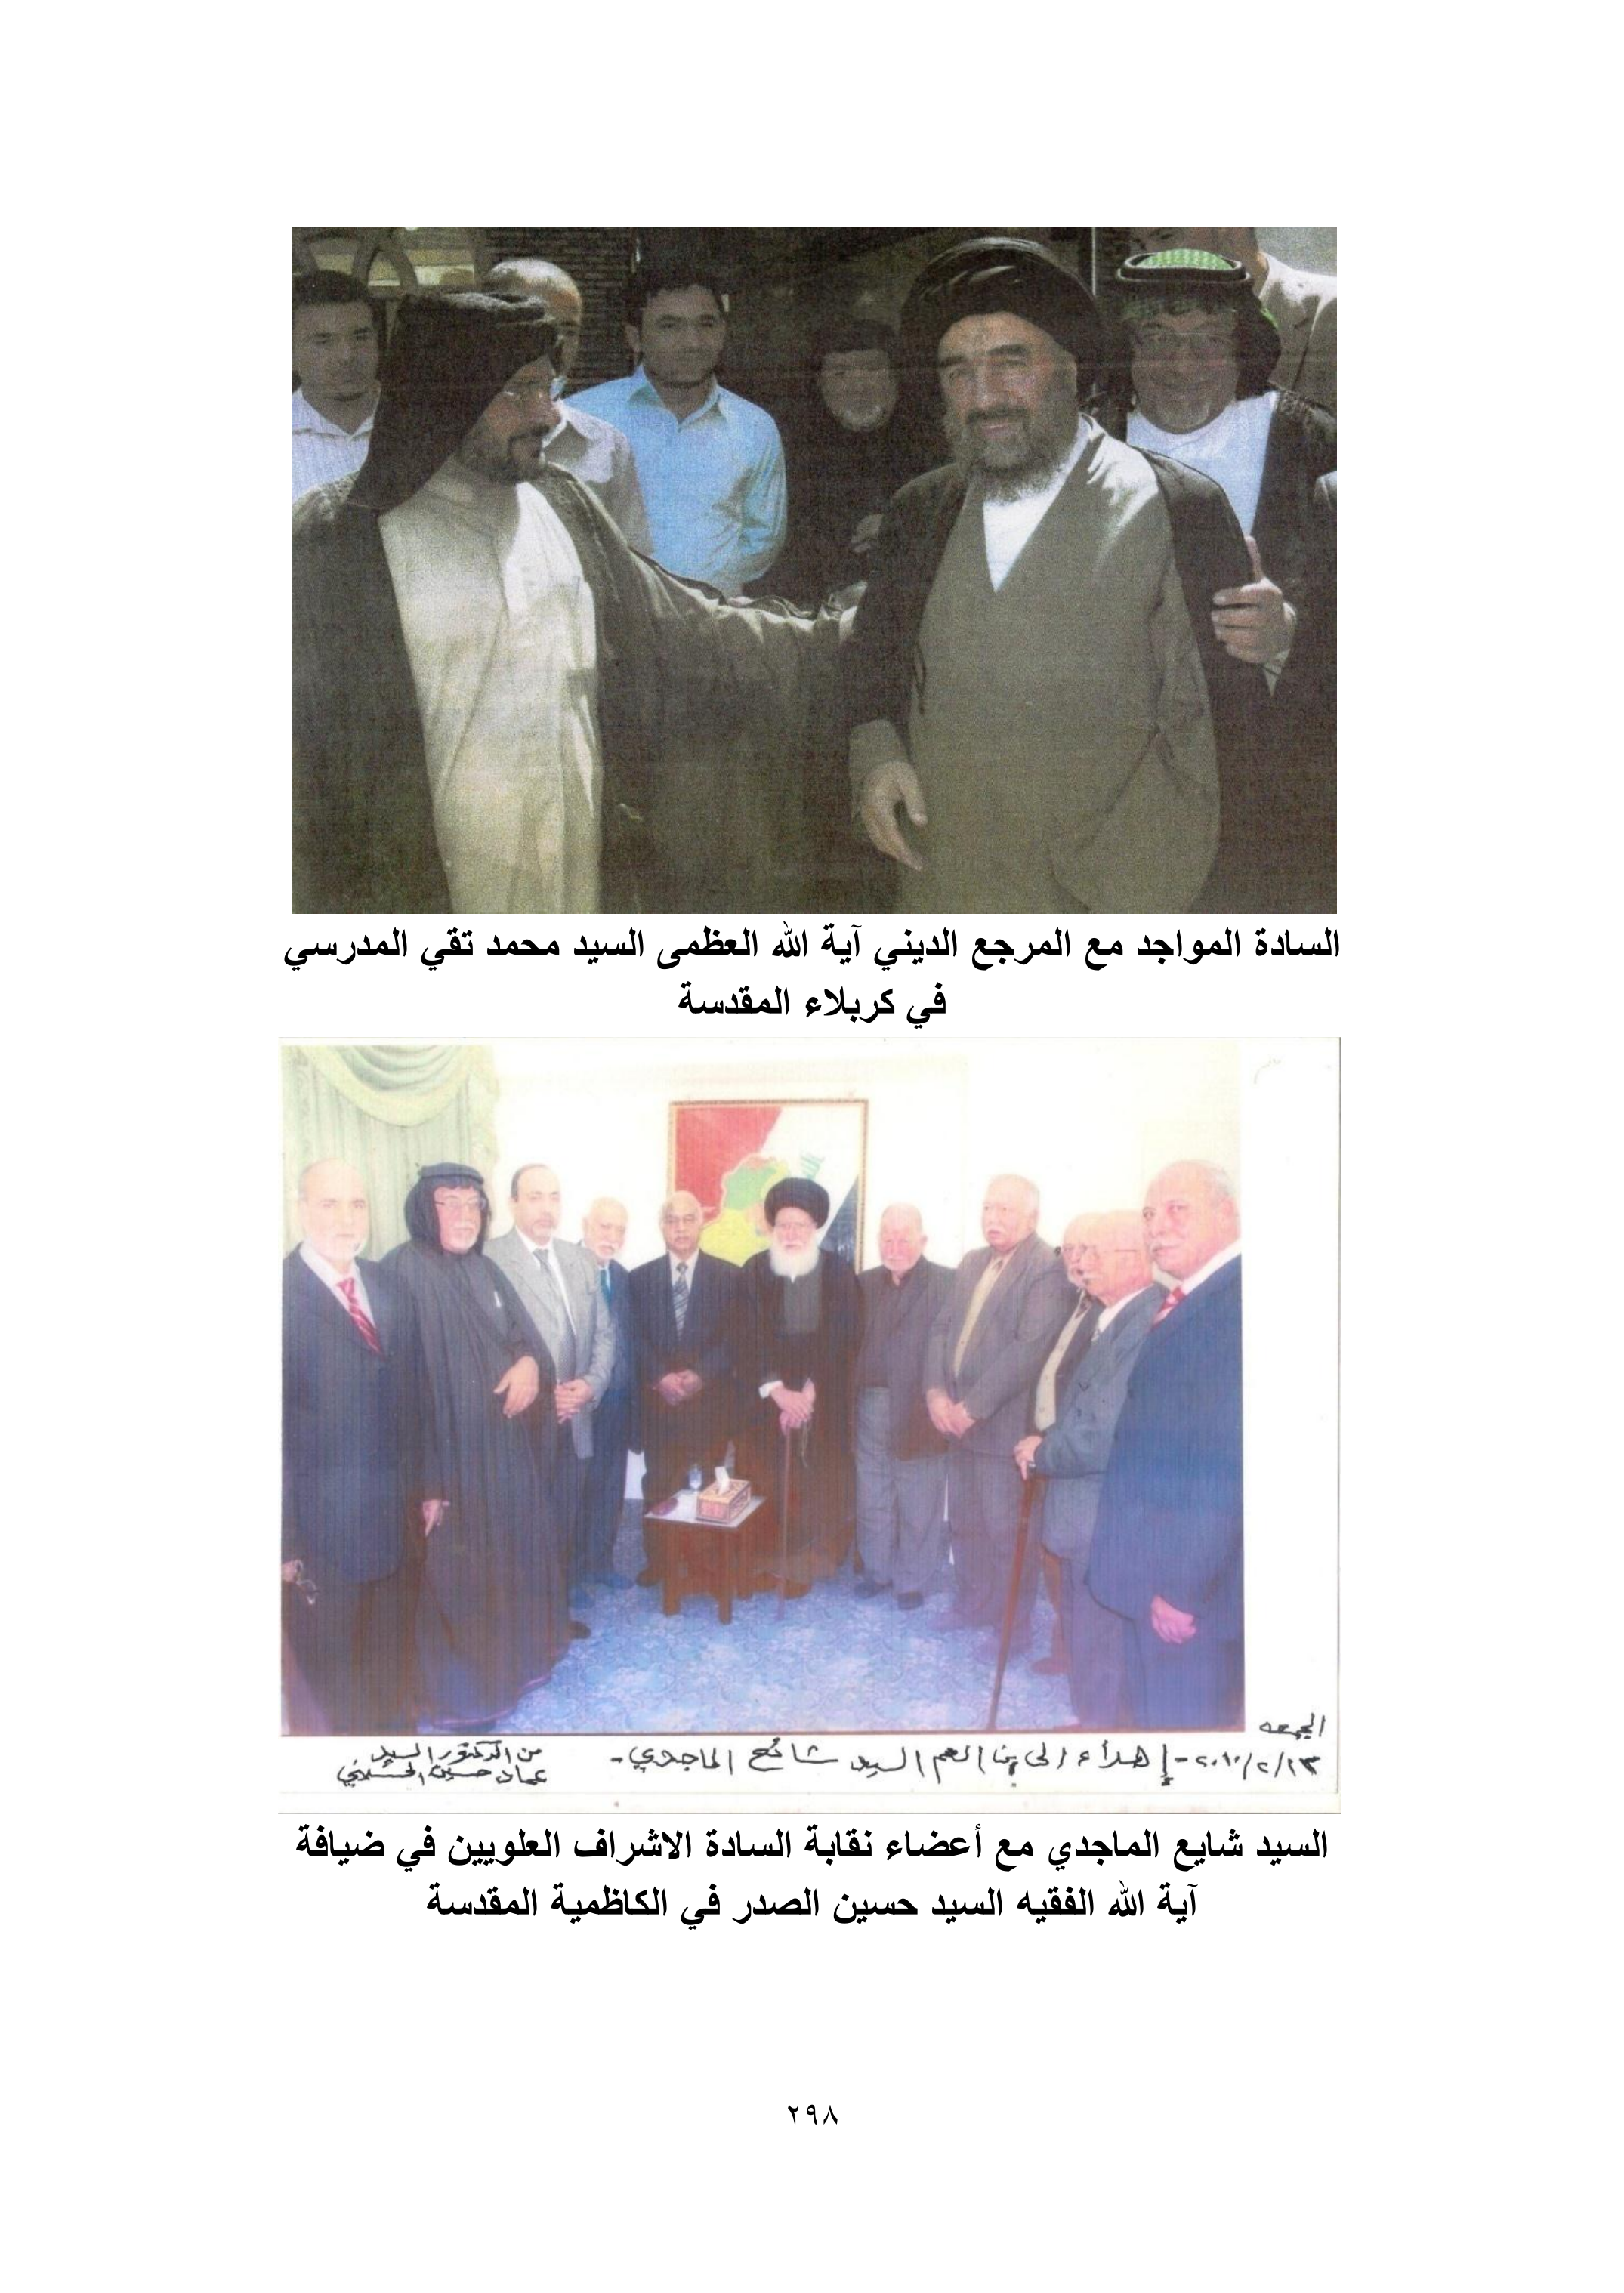 السادة المواجد مع المرجع الديني آية الله العظمى السيد محمد تقي المدرسي
في كربلاء المقدسة
الجمعه
٢٠١٠/٢/١٣ - إهداء الى بن العم السيد شائع الماجدي -
من الدكتور السيد
عماد حسين
السيد شايع الماجدي مع أعضاء نقابة السادة الاشراف العلويين في ضيافة
آية الله الفقيه السيد حسين الصدر في الكاظمية المقدسة
٢٩٨